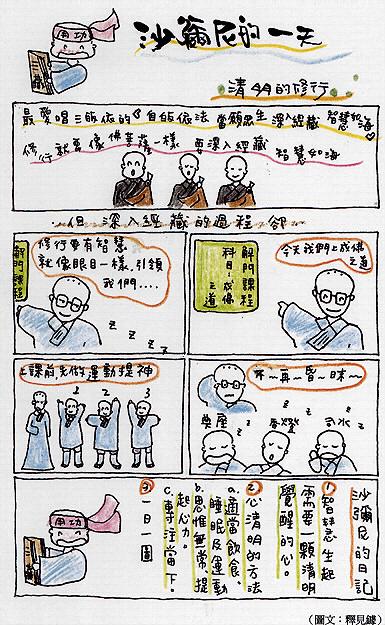 用功
沙彌尼的一天
清明的修行
最愛唱三皈依的「自皈依法 當願眾生 深入經藏 智慧如海」
修行就要像佛菩薩一樣 要深入經藏 智慧如海
但深入經藏的過程卻
解門課程
科目:成佛之道
今天我們上成佛之道
解門課程
修行要有智慧
就像眼目一樣,引領
我們....
z z z z
上課前,先做運動提神
1 2 3
不~再~昏~昧~~
z z z z z
沙彌尼的日記
①智慧生起
需要一顆清明
覺醒的心。
②心清明的方法
a.適當飲食、
睡眠及運動
b.思惟無常,提
起心力。
c.專注當下。
③一日一圖
用功
(圖文:釋見鐻)